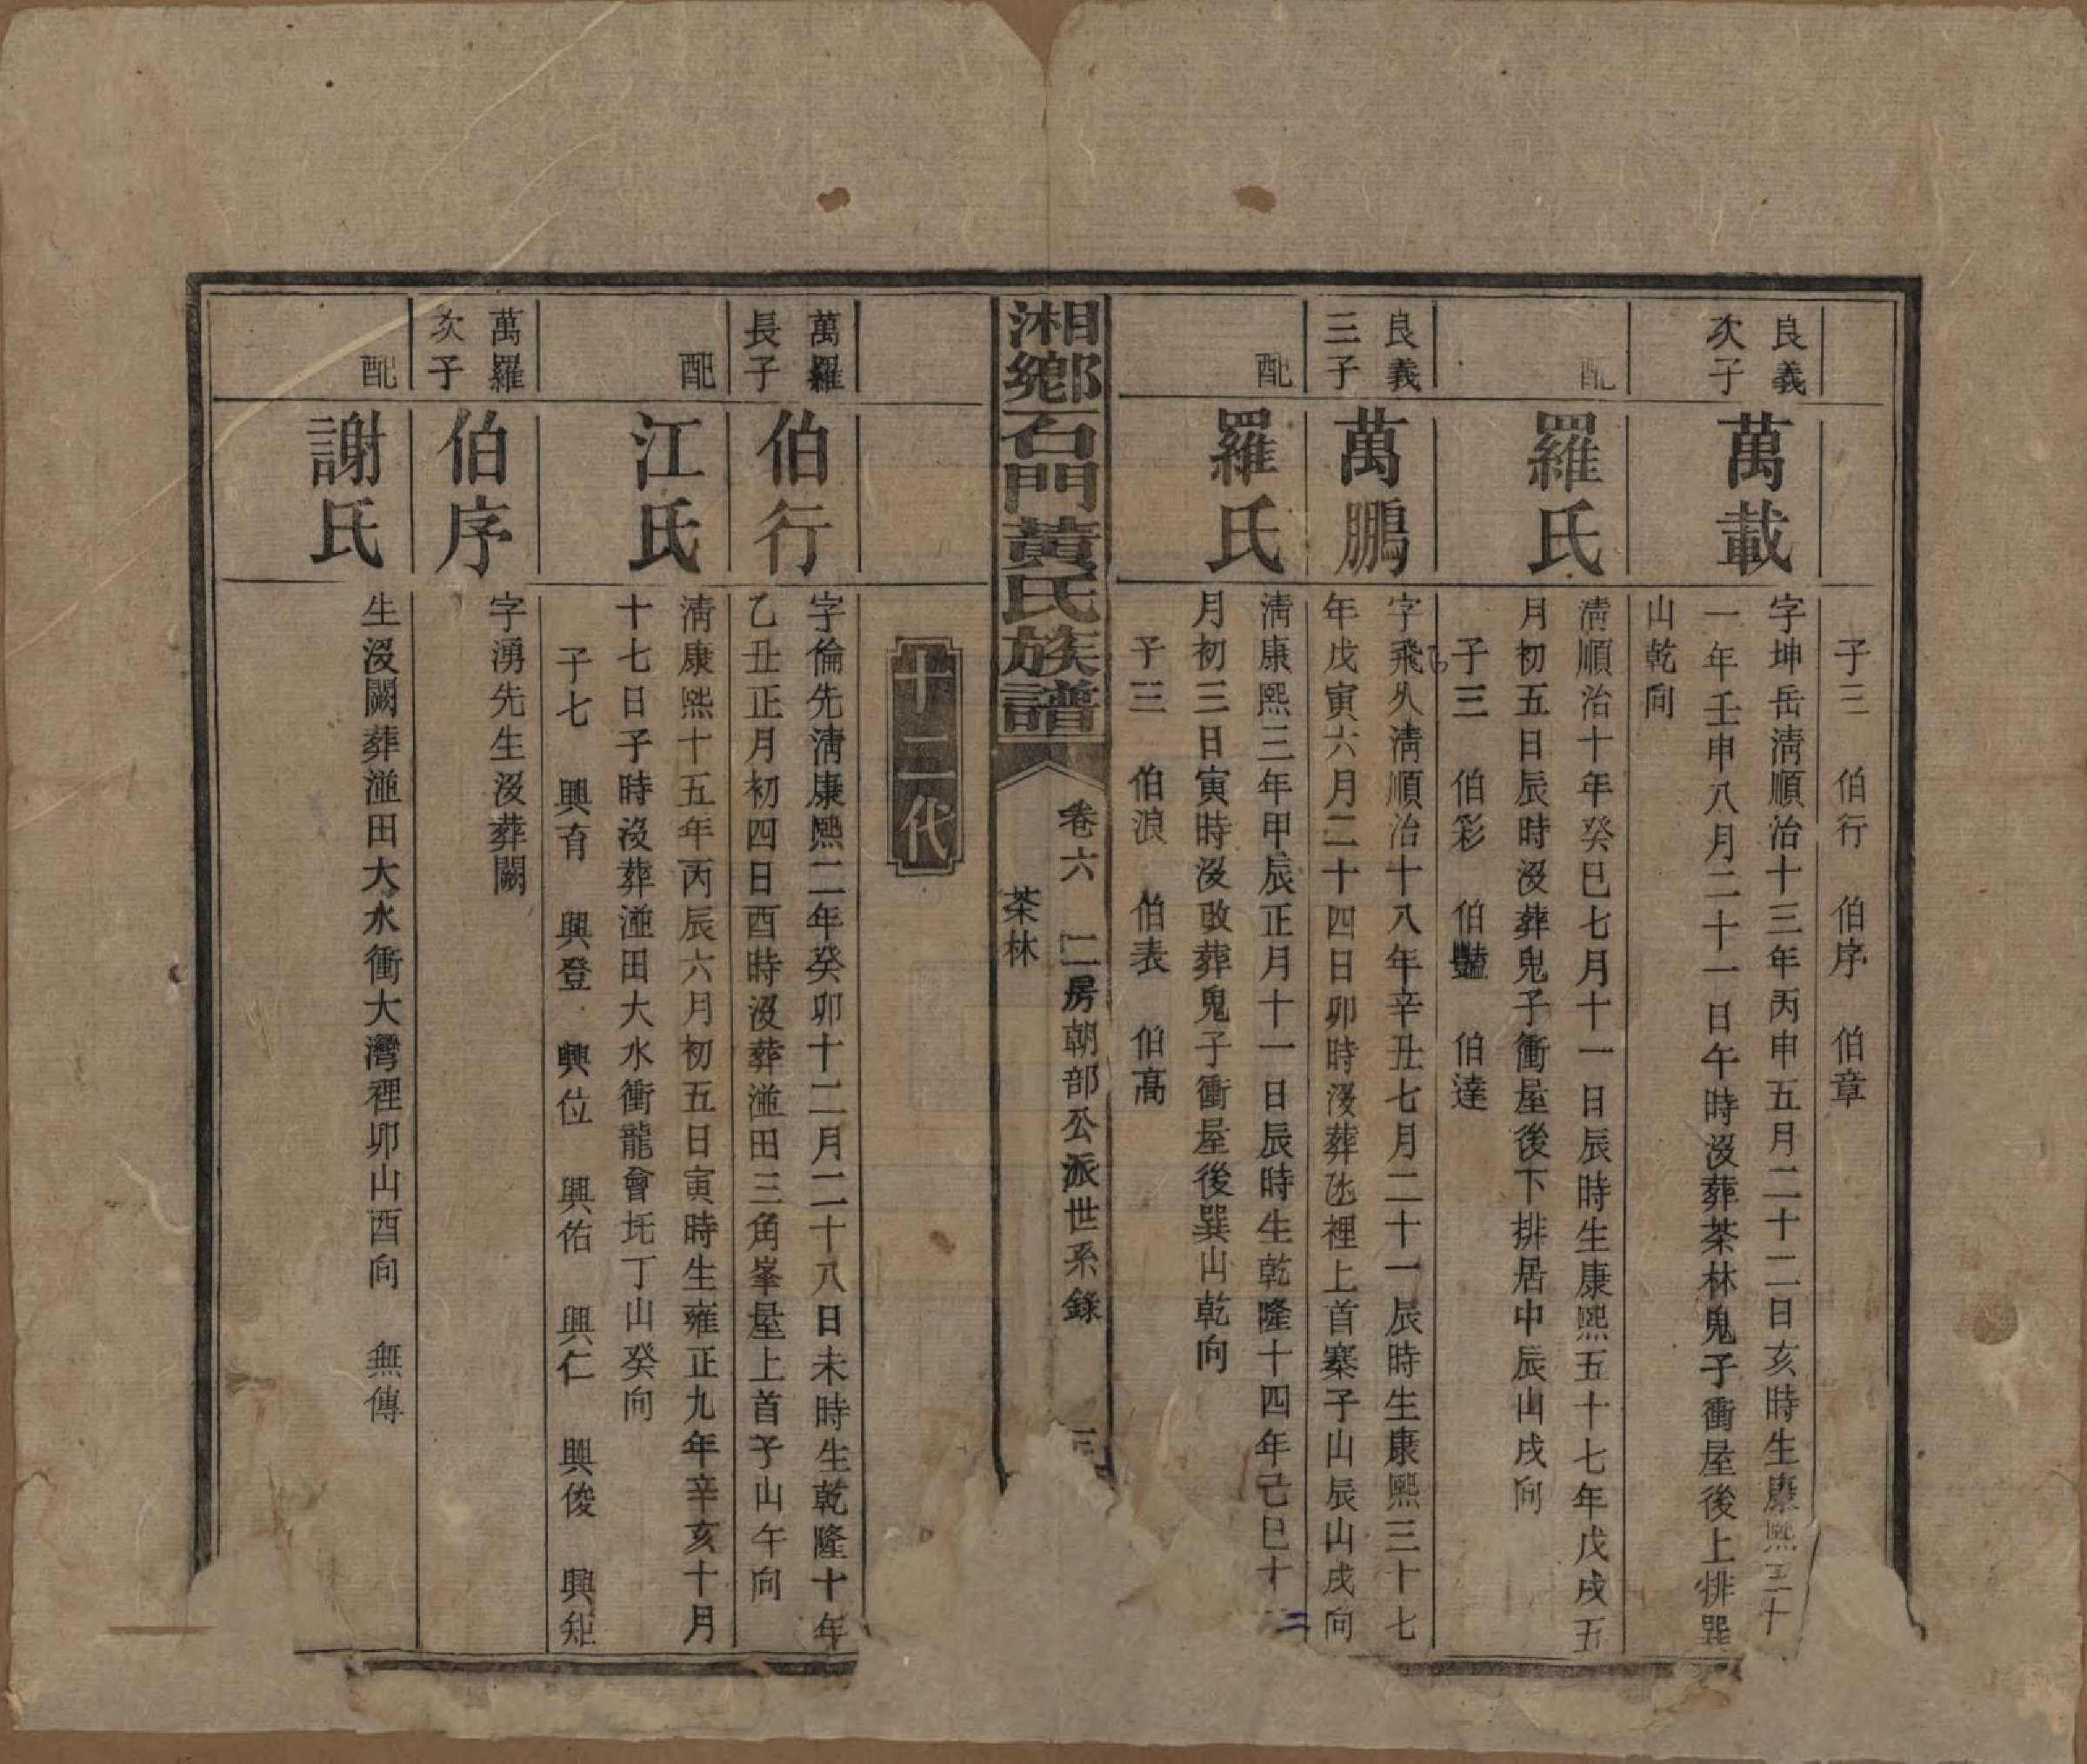 子三　伯行　伯序　伯章
良義
次子
萬載
字坤岳淸順治十三年丙申五月二十二日亥時生康熙三十
一年壬申八月二十一日午時沒葬茶林鬼子衝屋後上排巽
山乾向
配
羅氏
淸順治十年癸巳七月十一日辰時生康熙五十七年戊戌五
月初五日辰時沒葬鬼子衝屋後下排居中辰山戌向
子三　伯彩　伯豔　伯達
良義
三子
萬鵬
字飛久淸順治十八年辛丑七月二十一辰時生康熙三十七
年戊寅六月二十四日卯時沒葬氹裡上首寨子山辰山戌向
配
羅氏
淸康熙三年甲辰正月十一日辰時生乾隆十四年己巳十二
月初三日寅時沒改葬鬼子衝屋後巽山乾向
子三　伯浪　伯表　伯高
湘鄉石門黃氏族譜
卷六　二房朝部公派世系錄
茶林
十二代
萬羅
長子
伯行
字倫先淸康熙二年癸卯十二月二十八日未時生乾隆十年
乙丑正月初四日酉時沒葬湴田三角峯屋上首子山午向
配
江氏
淸康熙十五年丙辰六月初五日寅時生雍正九年辛亥十月
十七日子時沒葬湴田大水衝龍會圫丁山癸向
子七　興育　興登　興位　興佑　興仁　興俊　興矩
萬羅
次子
伯序
字湧先生沒葬闕
配
謝氏
生沒闕葬湴田大水衝大灣裡卯山酉向　無傳